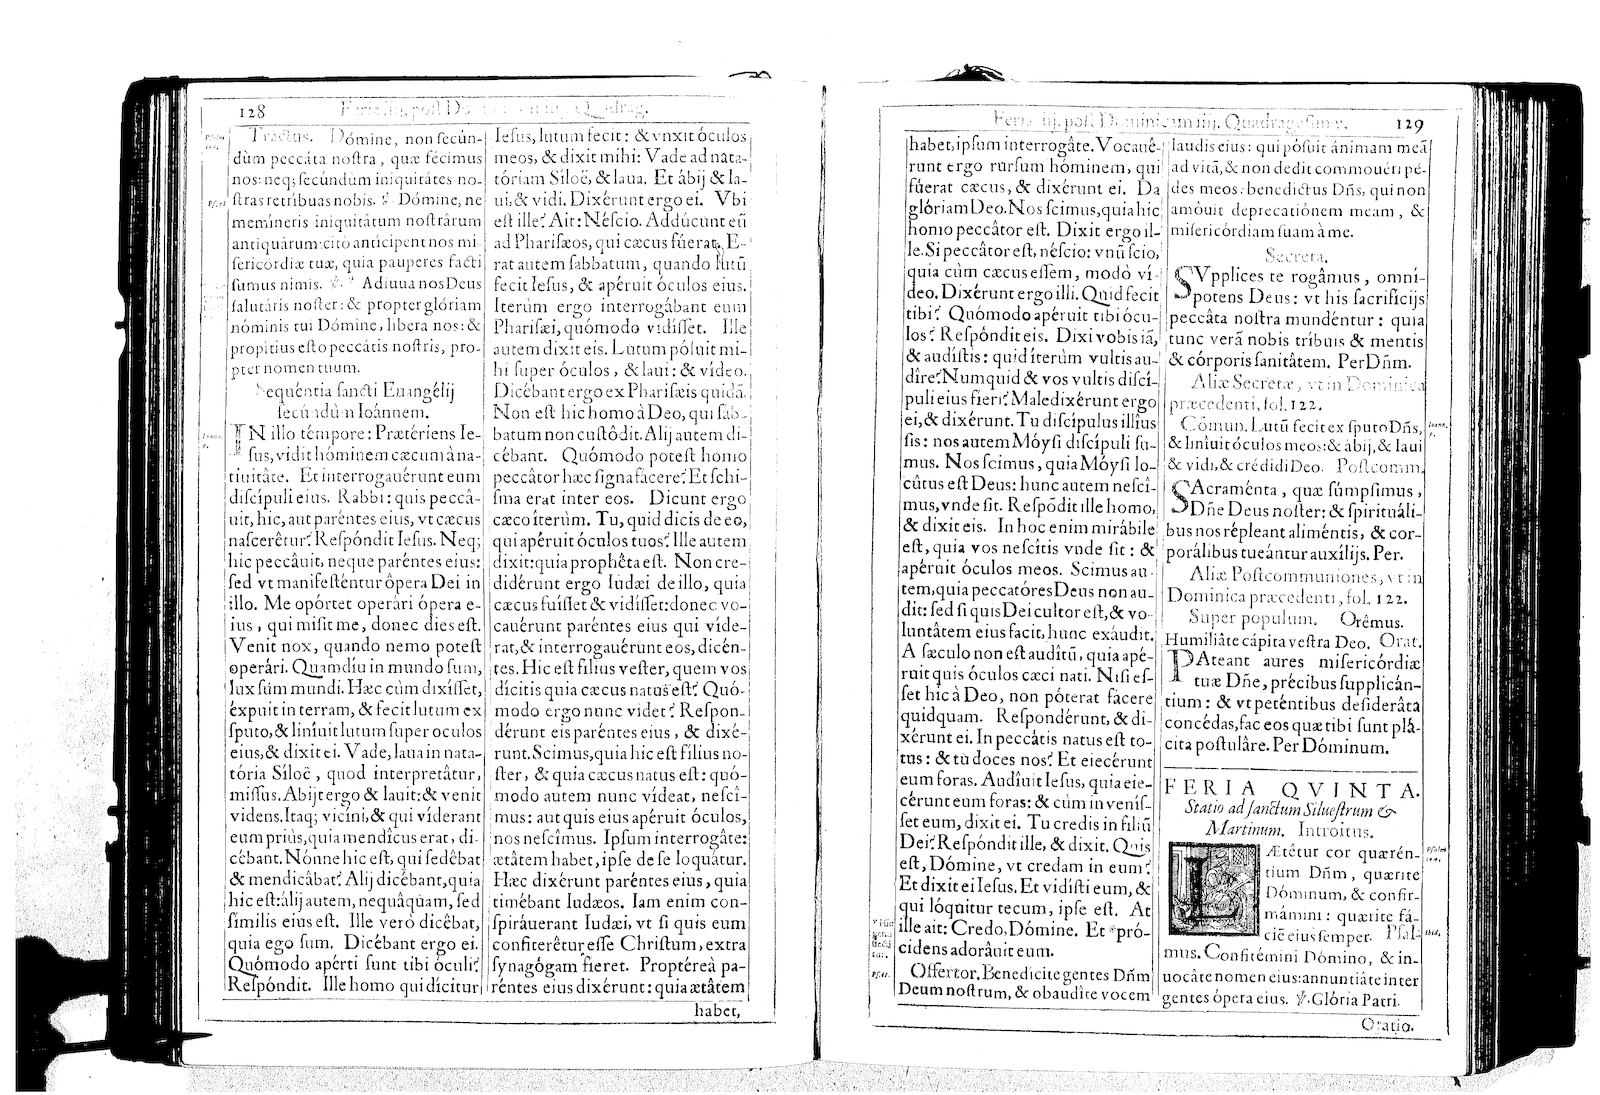 128 Feria iiij. post Dominicam iiij. Quadrag.
Tractus. Dómine, non secún-
dùm peccáta nostra, quæ fécimus
nos: neq; secúndùm iniquitátes no-
stras retríbuas nobis. ℣. Dómine, ne
memíneris iniquitátum nostrárum
antiquárum: citò antícipent nos mi-
sericórdiæ tuæ, quia páuperes facti
sumus nimis. ℣. Adiuua nos Deus
salutáris noster: & propter glóriam
nóminis tui Dómine, libera nos: &
propítius esto peccátis nostris, pro-
pter nomen tuum.
Sequéntia sancti Euangélij
secúndùm Ioánnem.
IN illo témpore: Prætériens Ie-
sus, vidit hóminem cæcum à na-
tiuitâte. Et interrogauérunt eum
discípuli eius. Rabbi: quis peccâ-
uit, hic, aut paréntes eius, vt cæcus
nascerêtur? Respóndit Iesus. Neq;
hic peccâuit, neque paréntes eius:
sed vt manifesténtur ôpera Dei in
illo. Me opórtet operári ópera e-
ius, qui misit me, donec dies est.
Venit nox, quando nemo potest
operári. Quamdíu in mundo sum,
lux sum mundi. Hæc cùm dixísset,
éxpuit in terram, & fecit lutum ex
sputo, & liníuit lutum super oculos
eius, & dixit ei. Vade, laua in nata-
tória Síloë, quod interpretâtur,
missus. Abijt ergo & lauit: & venit
videns. Itaq; vicíni, & qui víderant
eum priùs, quia mendícus erat, di-
cébant. Nónne hic est, qui sedêbat
& mendicâbat? Alij dicébant, quia
hic est: álij autem, nequâquam, sed
símilis eius est. Ille verò dicêbat,
quia ego sum. Dicébant ergo ei.
Quómodo apérti sunt tibi óculi?
Respóndit. Ille homo qui dícitur
Iesus, lutum fecit: & vnxit óculos
meos, & dixit mihi: Vade ad nata-
tóriam Síloë, & laua. Et ábij & la-
ui, & vidi. Dixérunt ergo ei. Vbi
est ille? Ait: Néscio. Addúcunt eũ
ad Pharisæos, qui cæcus fúerat. E-
rat autem sabbatum, quando lutũ
fecit Iesus, & apéruit óculos eius.
Iterùm ergo interrogábant eum
Pharisæi, quómodo vidísset. Ille
autem dixit eis. Lutum pósuit mi-
hi super óculos, & laui: & vídeo.
Dicébant ergo ex Pharisæis quidã.
Non est hic homo à Deo, qui sab-
batum non custôdit. Alij autem di-
cébant. Quómodo potest homo
peccâtor hæc signa fácere? Et schi-
sma erat inter eos. Dicunt ergo
cæco íterùm. Tu, quid dicis de eo,
qui apéruit óculos tuos? Ille autem
dixit: quia prophêta est. Non cre-
didérunt ergo Iudæi de illo, quia
cæcus fuísset & vidísset: donec vo-
cauérunt paréntes eius qui víde-
rat, & interrogauérunt eos, dicén-
tes. Hic est filius vester, quem vos
dícitis quia cæcus natus est? Quó-
modo ergo nunc videt? Respon-
dérunt eis paréntes eius, & dixé-
runt. Scimus, quia hic est fílius no-
ster, & quia cæcus natus est: quó-
modo autem nunc vídeat, nescí-
mus: aut quis eius apéruit óculos,
nos nescímus. Ipsum interrogâte:
ætâtem habet, ipse de se loquâtur.
Hæc dixérunt paréntes eius, quia
timébant Iudæos. Iam enim con-
spiráuerant Iudæi, vt si quis eum
confiterêtur esse Christum, extra
synagógam fieret. Proptéreà pa-
réntes eius dixérunt: quia ætâtem
habet,
Feria iiij. post Dominicam iiij. Quadragesimæ. 129
habet, ipsum interrogâte. Vocaué-
runt ergo rursum hóminem, qui
fúerat cæcus, & dixérunt ei. Da
glóriam Deo. Nos scimus, quia hic
homo peccâtor est. Dixit ergo il-
le. Si peccâtor est, néscio: vnũ scio,
quia cùm cæcus essem, modò ví-
deo. Dixérunt ergo illi. Quid fecit
tibi? Quómodo apéruit tibi ócu-
los? Respóndit eis. Dixi vobis iã,
& audístis: quid íterùm vultis au-
díre? Numquid & vos vultis discí-
puli eius fieri? Maledixérunt ergo
ei, & dixérunt. Tu discípulus illíus
sis: nos autem Móysi discípuli su-
mus. Nos scimus, quia Móysi lo-
cûtus est Deus: hunc autem nescí-
mus, vnde sit. Respõdit ille homo,
& dixit eis. In hoc enim mirábile
est, quia vos nescítis vnde sit: &
apéruit óculos meos. Scimus au-
tem, quia peccatóres Deus non au-
dit: sed si quis Dei cultor est, & vo-
luntâtem eius facit, hunc exáudit.
A sæculo non est audítũ, quia apé-
ruit quis óculos cæci nati. Nisi es-
set hic à Deo, non póterat fàcere
quidquam. Respondérunt, & di-
xérunt ei. In peccâtis natus est to-
tus: & tu doces nos? Et eiecérunt
eum foras. Audîuit Iesus, quia eie-
cérunt eum foras: & cùm inveníf-
set eum, dixit ei. Tu credis in filiũ
Dei? Respóndit ille, & dixit. Quis
est, Dómine, vt credam in eum?
Et dixit ei Iesus. Et vidísti eum, &
qui lóquitur tecum, ipse est. At
ille ait: Credo, Dómine. Et *pró-
cidens adorâuit eum.
Offertor. Benedícite gentes Dñm
Deum nostrum, & obaudîte vocem
laudis eius: qui pósuit ánimam meã
ad vitã, & non dedit commouéri pé-
des meos: benedíctus Dñs, qui non
amóuit deprecatiónem meam, &
misericórdiam suam à me.
Secreta.
SVpplices te rogâmus, omní-
potens Deus: vt his sacrifícijs
peccâta nostra mundéntur: quia
tunc verã nobis tríbuis & mentis
& córporis sanitâtem. Per Dñm.
Aliæ Secretæ, vt in Dominica
præcedenti, fol. 122.
Cómun. Lutũ fecit ex sputo Dñs,
& liníuit óculos meos: & ábij, & laui
& vidi, & crédidi Deo. Postcomm.
SAcraménta, quæ súmpsimus,
Dñe Deus noster: & spirituáli-
bus nos répleant aliméntis, & cor-
porálibus tueántur auxílijs. Per.
Aliæ Postcommuniones, vt in
Dominica præcedenti, fol. 122.
Super populum. Orémus.
Humiliâte cápita vestra Deo. Orat.
PAteant aures misericórdiæ
tuæ Dñe, précibus supplicán-
tium: & vt peténtibus desiderâta
concédas, fac eos quæ tibi sunt plá-
cita postulâre. Per Dóminum.
FERIA QVINTA.
Statio ad sanctum Siluestrum &
Martinum. Introitus.
LÆtêtur cor quærén-
tium Dñm, quærite
Dóminum, & confir-
mámini: quærite fá-
ciẽ eius semper. Psal-
mus. Confitémini Dómino, & in-
uocâte nomen eius: annuntiâte inter
gentes ópera eius. ℣. Glória Patri.
Oratio.